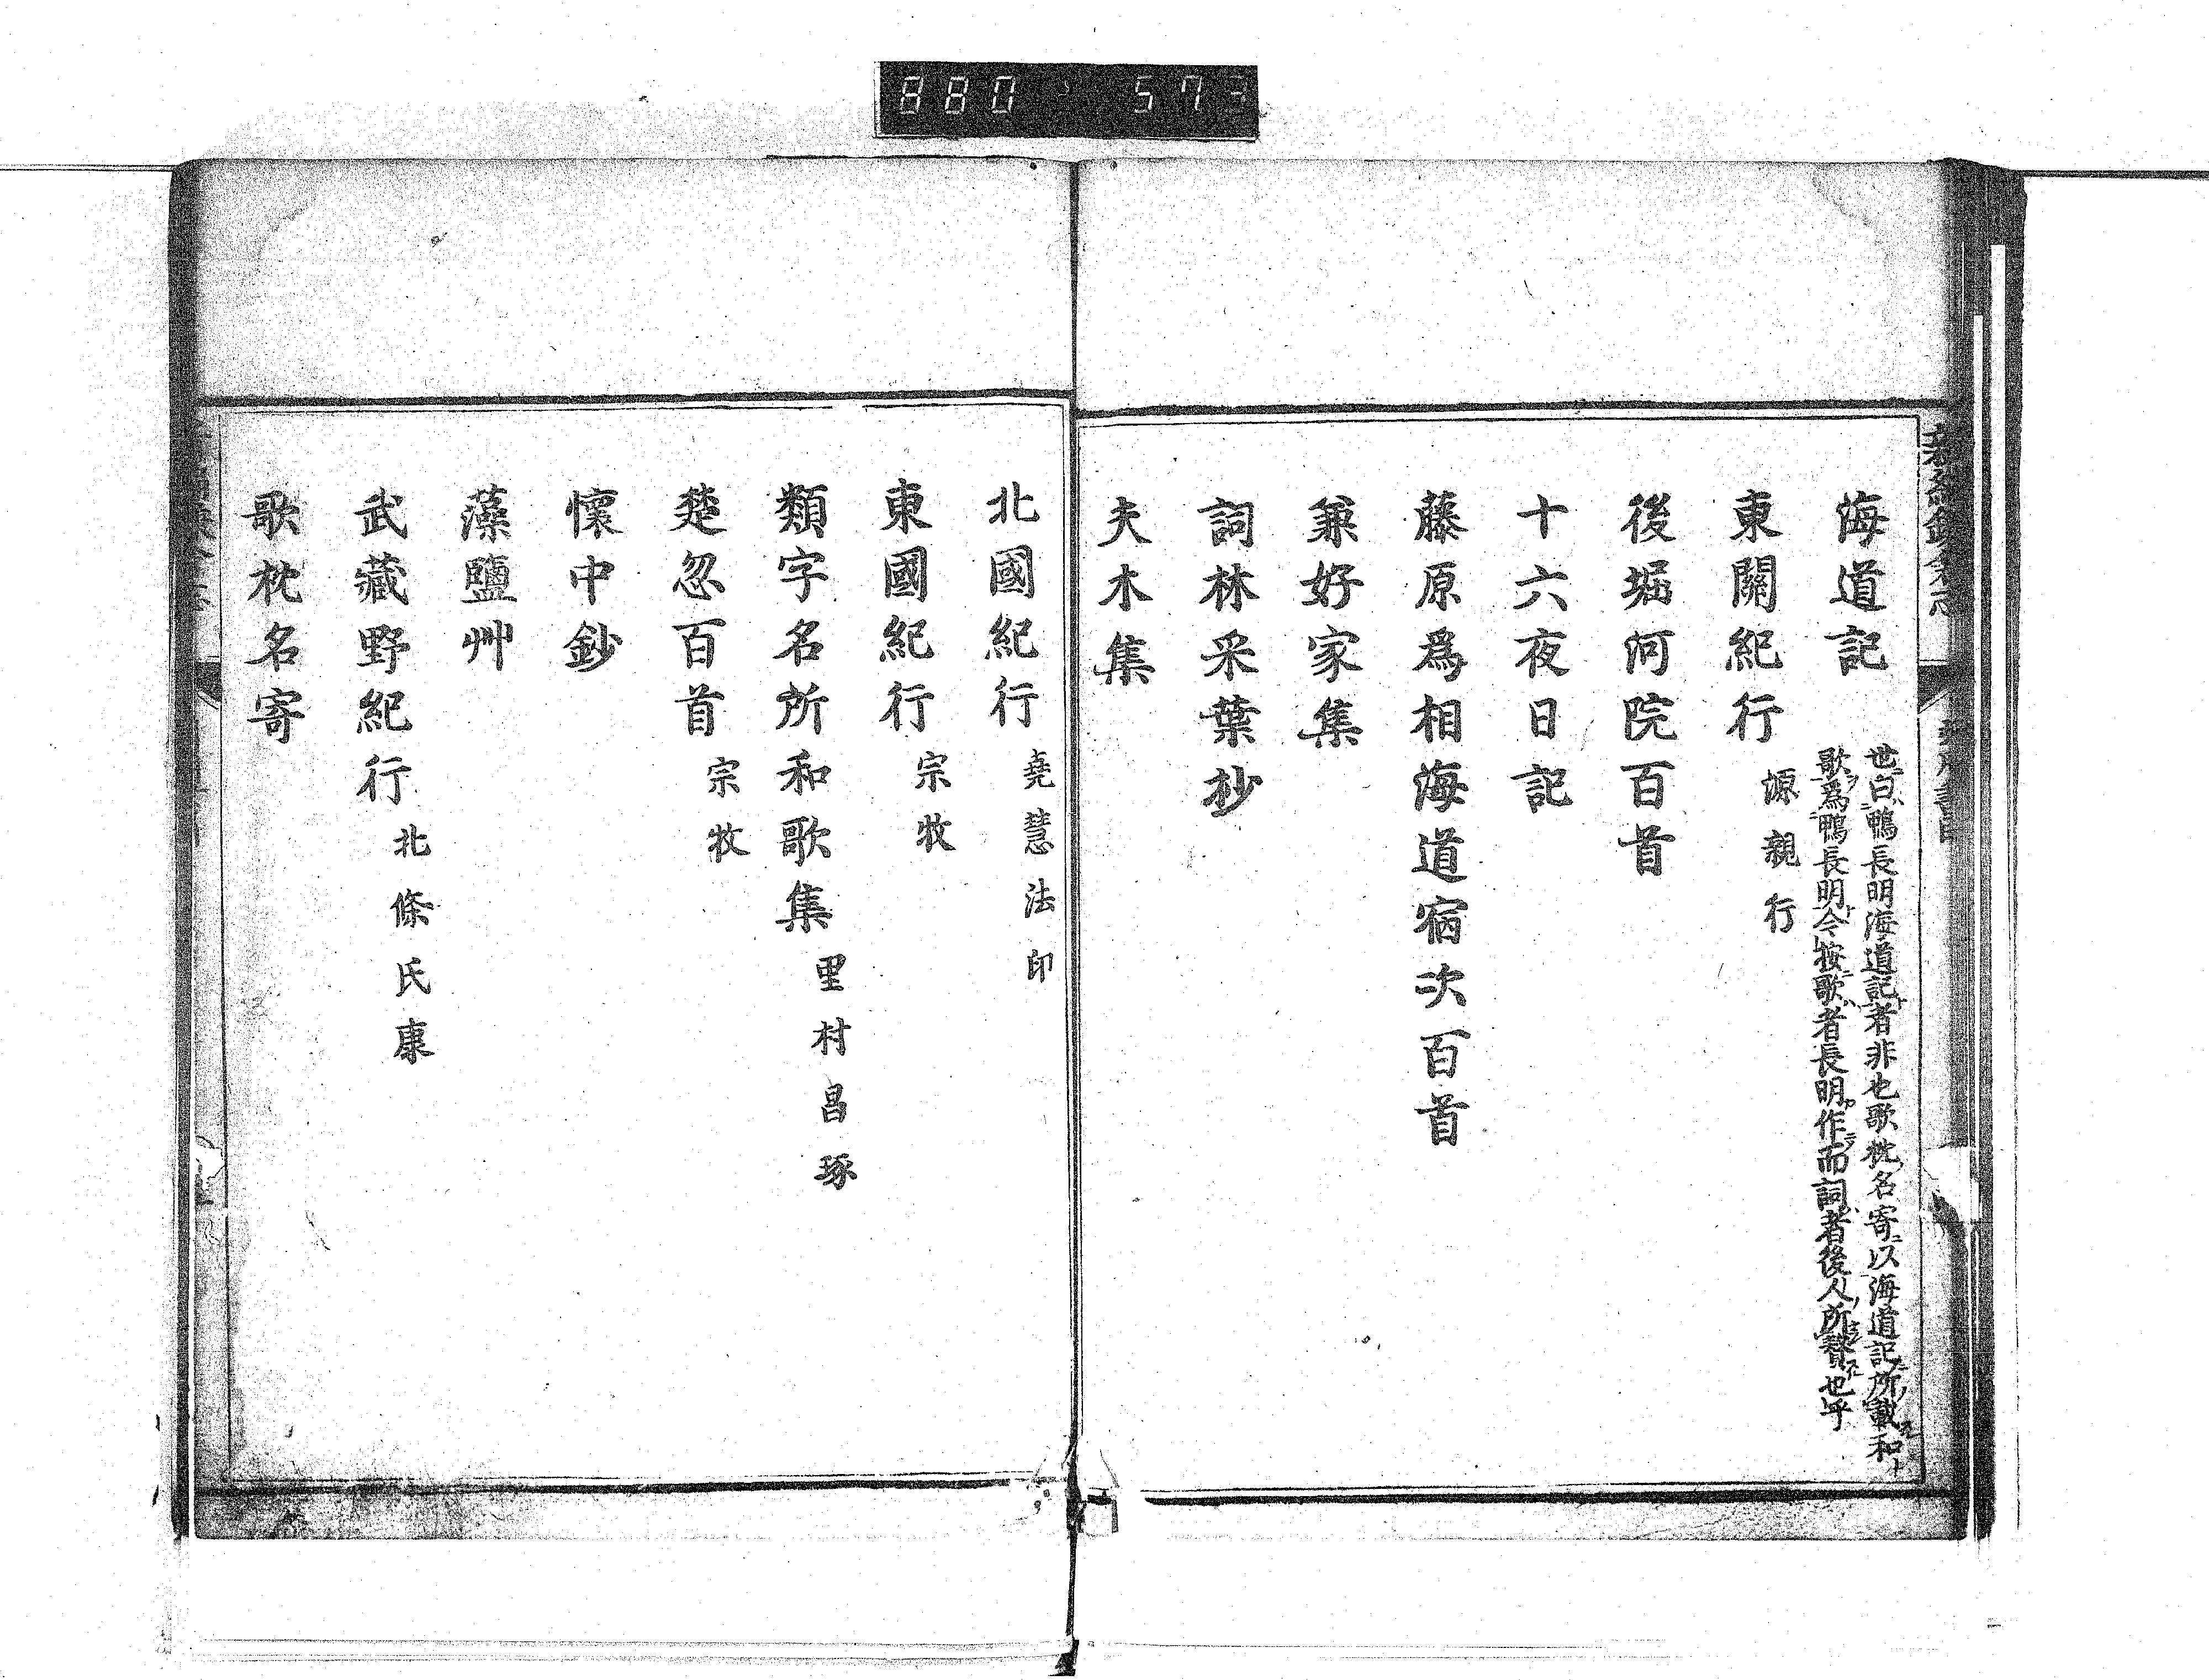 880 573
海道記
世ニ曰ハ鴨長明海道記ト者非也歌枕名寄ニ以海道記ニ所ノ載スル和
歌ヲ爲ニ鴨長明ト今按歌ハ者長明作而詞ハ者後人ノ所贅也乎
東關紀行 源親行
後堀河院百首
十六夜日記
藤原爲相海道宿次百首
兼好家集
詞林采葉抄
夫木集
北國紀行 堯慧法印
東國紀行 宗牧
類字名所和歌集 里村昌琢
楚忽百首 宗牧
懷中鈔
藻鹽艸
武藏野紀行 北條氏康
歌枕名寄